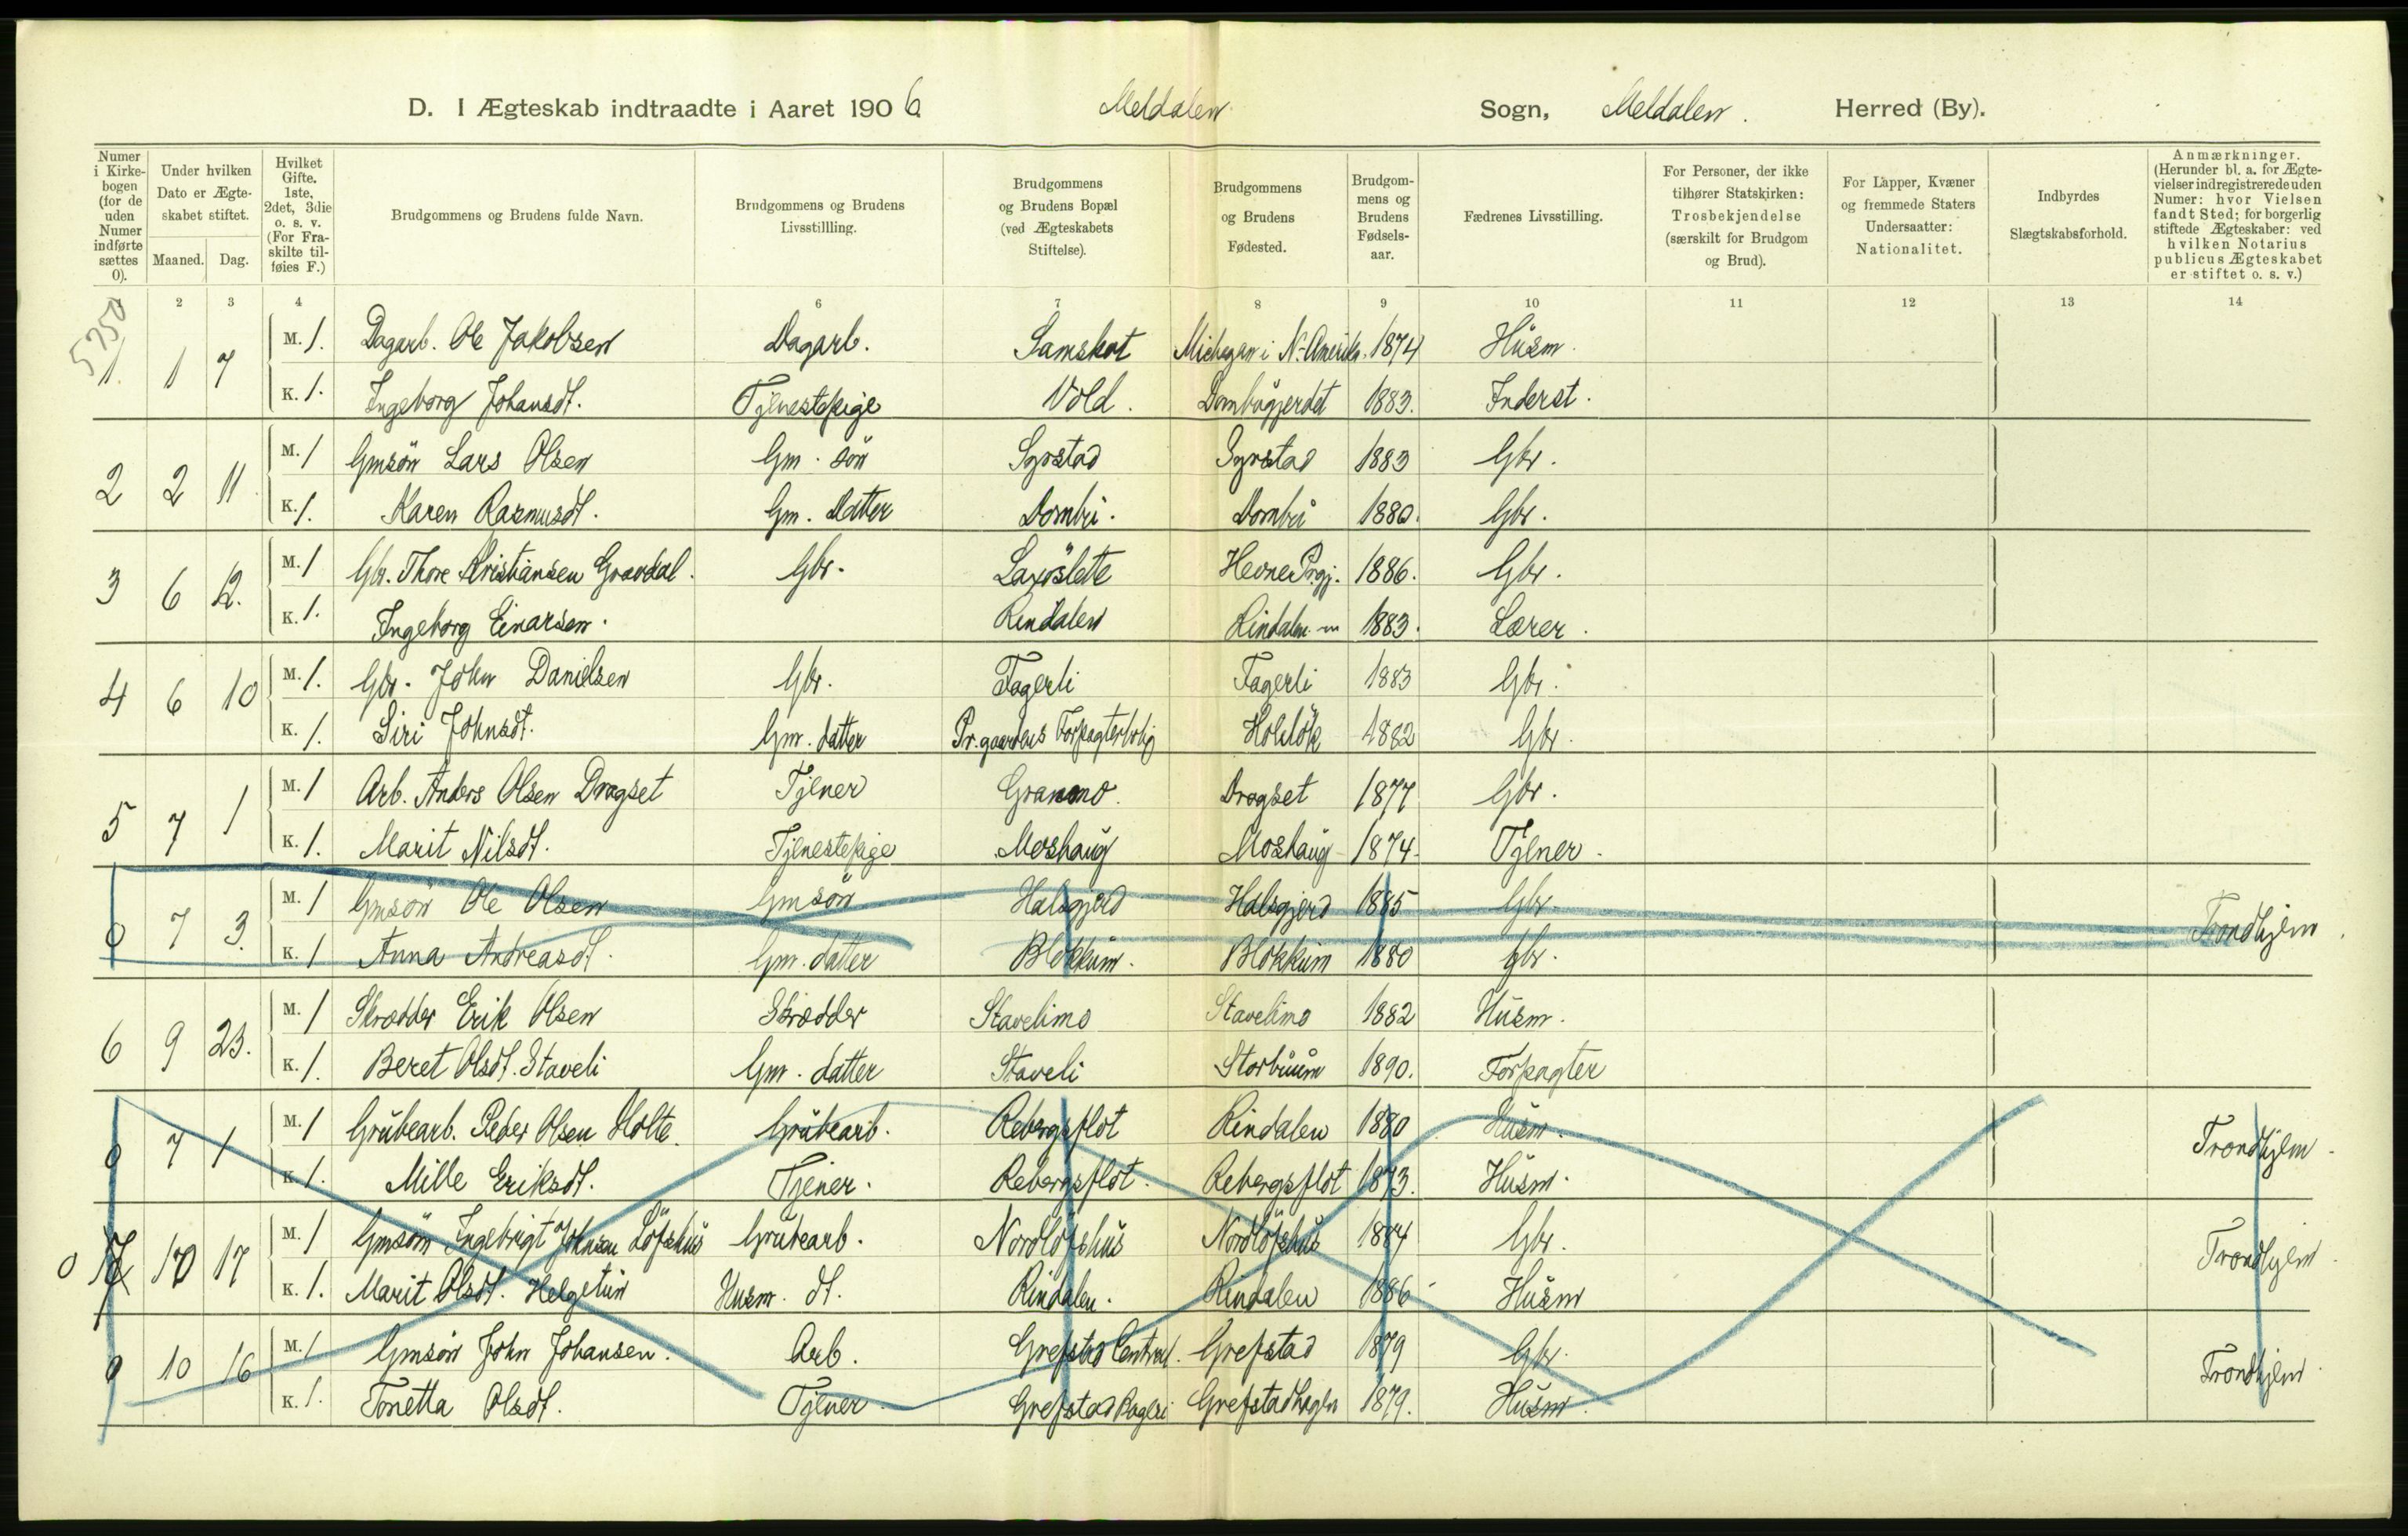 D. I Ægteskab indtraadte i Aaret 1906 Meldalen Sogn, Meldalen. Herred (By).
Numer i Kirkebogen (for de uden Numer indførte sættes 0).
Under hvilken Dato er Ægteskabet stiftet.
Maaned. Dag.
Hvilket Gifte. 1ste, 2det, 3die o. s. v. (For Fraskilte tilføies F.)
Brudgommens og Brudens fulde Navn.
Brudgommens og Brudens Livsstillling.
Brudgommens og Brudens Bopæl (ved Ægteskabets Stiftelse).
Brudgommens og Brudens Fødested.
Brudgommens og Brudens Fødselsaar.
Fædrenes Livsstilling.
For Personer, der ikke tilhører Statskirken: Trosbekjendelse (særskilt for Brudgom og Brud).
For Lapper, Kvæner og fremmede Staters Undersaatter: Nationalitet.
Indbyrdes Slægtskabsforhold.
Anmærkninger. (Herunder bl. a. for Ægtevielser indregistrerede uden Numer: hvor Vielsen fandt Sted; for borgerlig stiftede Ægteskaber: ved hvilken Notarius publicus Ægteskabet er stiftet o. s. v.)
2 3 4 6 7 8 9 10 11 12 13 14
5750
1 1 7 M. 1. Dagarb. Ole Jakobsen Dagarb. Samskot Michegan i N.-Amerika. 1874 Husm.
K. 1. Ingeborg Johansdt. Tjenestepige Vold. 1883. Inderst.
2 2 11 M. 1 Gmsön Lars Olsen Gm. sön Syrstad Syrstad 1883 Gbr.
K. 1. Karen Rasmusdt. Gm. Datter Dombu. Dombu 1880. Gbr.
3 6 12. M. 1 Gbr. Thore Kristiansen Gravdal. Gbr. Hevne Prgj. 1886. Gbr.
K. 1. Ingeborg Einarsen. Rindalen Rindalen 1883. Lærer.
4 6 10 M. 1. Gbr. John Danielsen Gbr. Fagerli Fagerli 1883 Gbr.
K. 1. Siri Johnsdt. Gm. datter Pr.gaardens Forpagterbolig 1882 Gbr.
5 7 1 M. 1 Arb. Anders Olsen Dragset Tjener Granmo. Dragset 1877 Gbr.
K. 1. Marit Nilsdt. Tjenestepige Moshaug Moshaug 1874. Tjener.
0 7 3. M. 1 Gmsön Ole Olsen Gmsön Halsgjerd Halsgjerd 1885 Gbr. Trondhjem.
K. 1 Anna Andreasdt. Gm. datter Blokkum. Blokkum 1880 Gbr.
6 9 23. M. 1 Skrædder Erik Olsen Skrædder Stavelimo Stavelimo 1882 Husm.
K. 1. Beret Olsdt. Staveli Gm. datter Staveli 1890. Forpagter
0 7 1 M. 1 Grubearb. Peder Olsen Holte. Grubearb. Rebergsflot Rindalen 1880 Husm. Trondhjem.
K. 1. Mille Eriksdt. Tjener. Rebergsflot. Rebergsflot 1873. Husm.
0 10 17 M. 1 Gmsön Ingebrigt Johnsen Löfshus Grubearb. Nordlöfshus Nordlöfshus 1884 Gbr. Trondhjem.
K. 1. Marit Olsdt. Helgetun Husm. dt. Rindalen. Rindalen 1886 Husm
0 10 16 M. 1 Gmsön John Johansen. Arb. Grefstad Central. Grefstad 1879 Gbr. Trondhjem.
K. 1. Tonetta Olsdt. Tjener. Grefstad Grefstadhagen 1879. Husm.